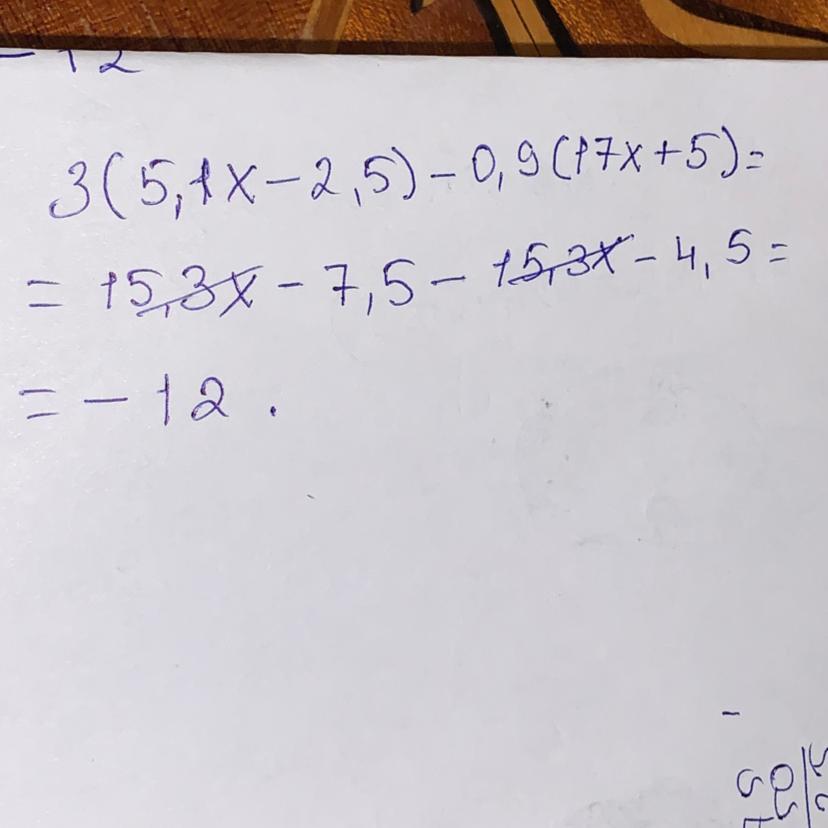 - 12
3(5,1x - 2,5) - 0,9(17x + 5) =
= 15,3x - 7,5 - 15,3x - 4,5 =
= - 12 .